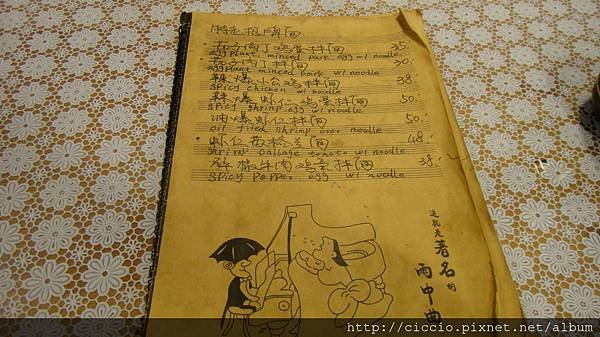 特色招牌面
茄子肉丁鸡蛋拌面 35.
eggplant minced park egg w/ noodle
茄子肉丁拌面 30.
eggplant minced park w/ noodle
辣爆小公鸡拌面 38.
spicy chicken w/ noodle
辣爆虾仁鸡蛋拌面 50.
spicy shrimp egg w/ noodle
油爆虾仁拌面 50.
oil fried shrimp over noodle
虾仁西松兰面 48.
shrimp cabbage tomato w/ noodle
麻辣牛肉鸡蛋拌面 38.
spicy pepper egg w/ noodle
這就是
著名的
雨中曲
http://ciccio.pixnet.net/album